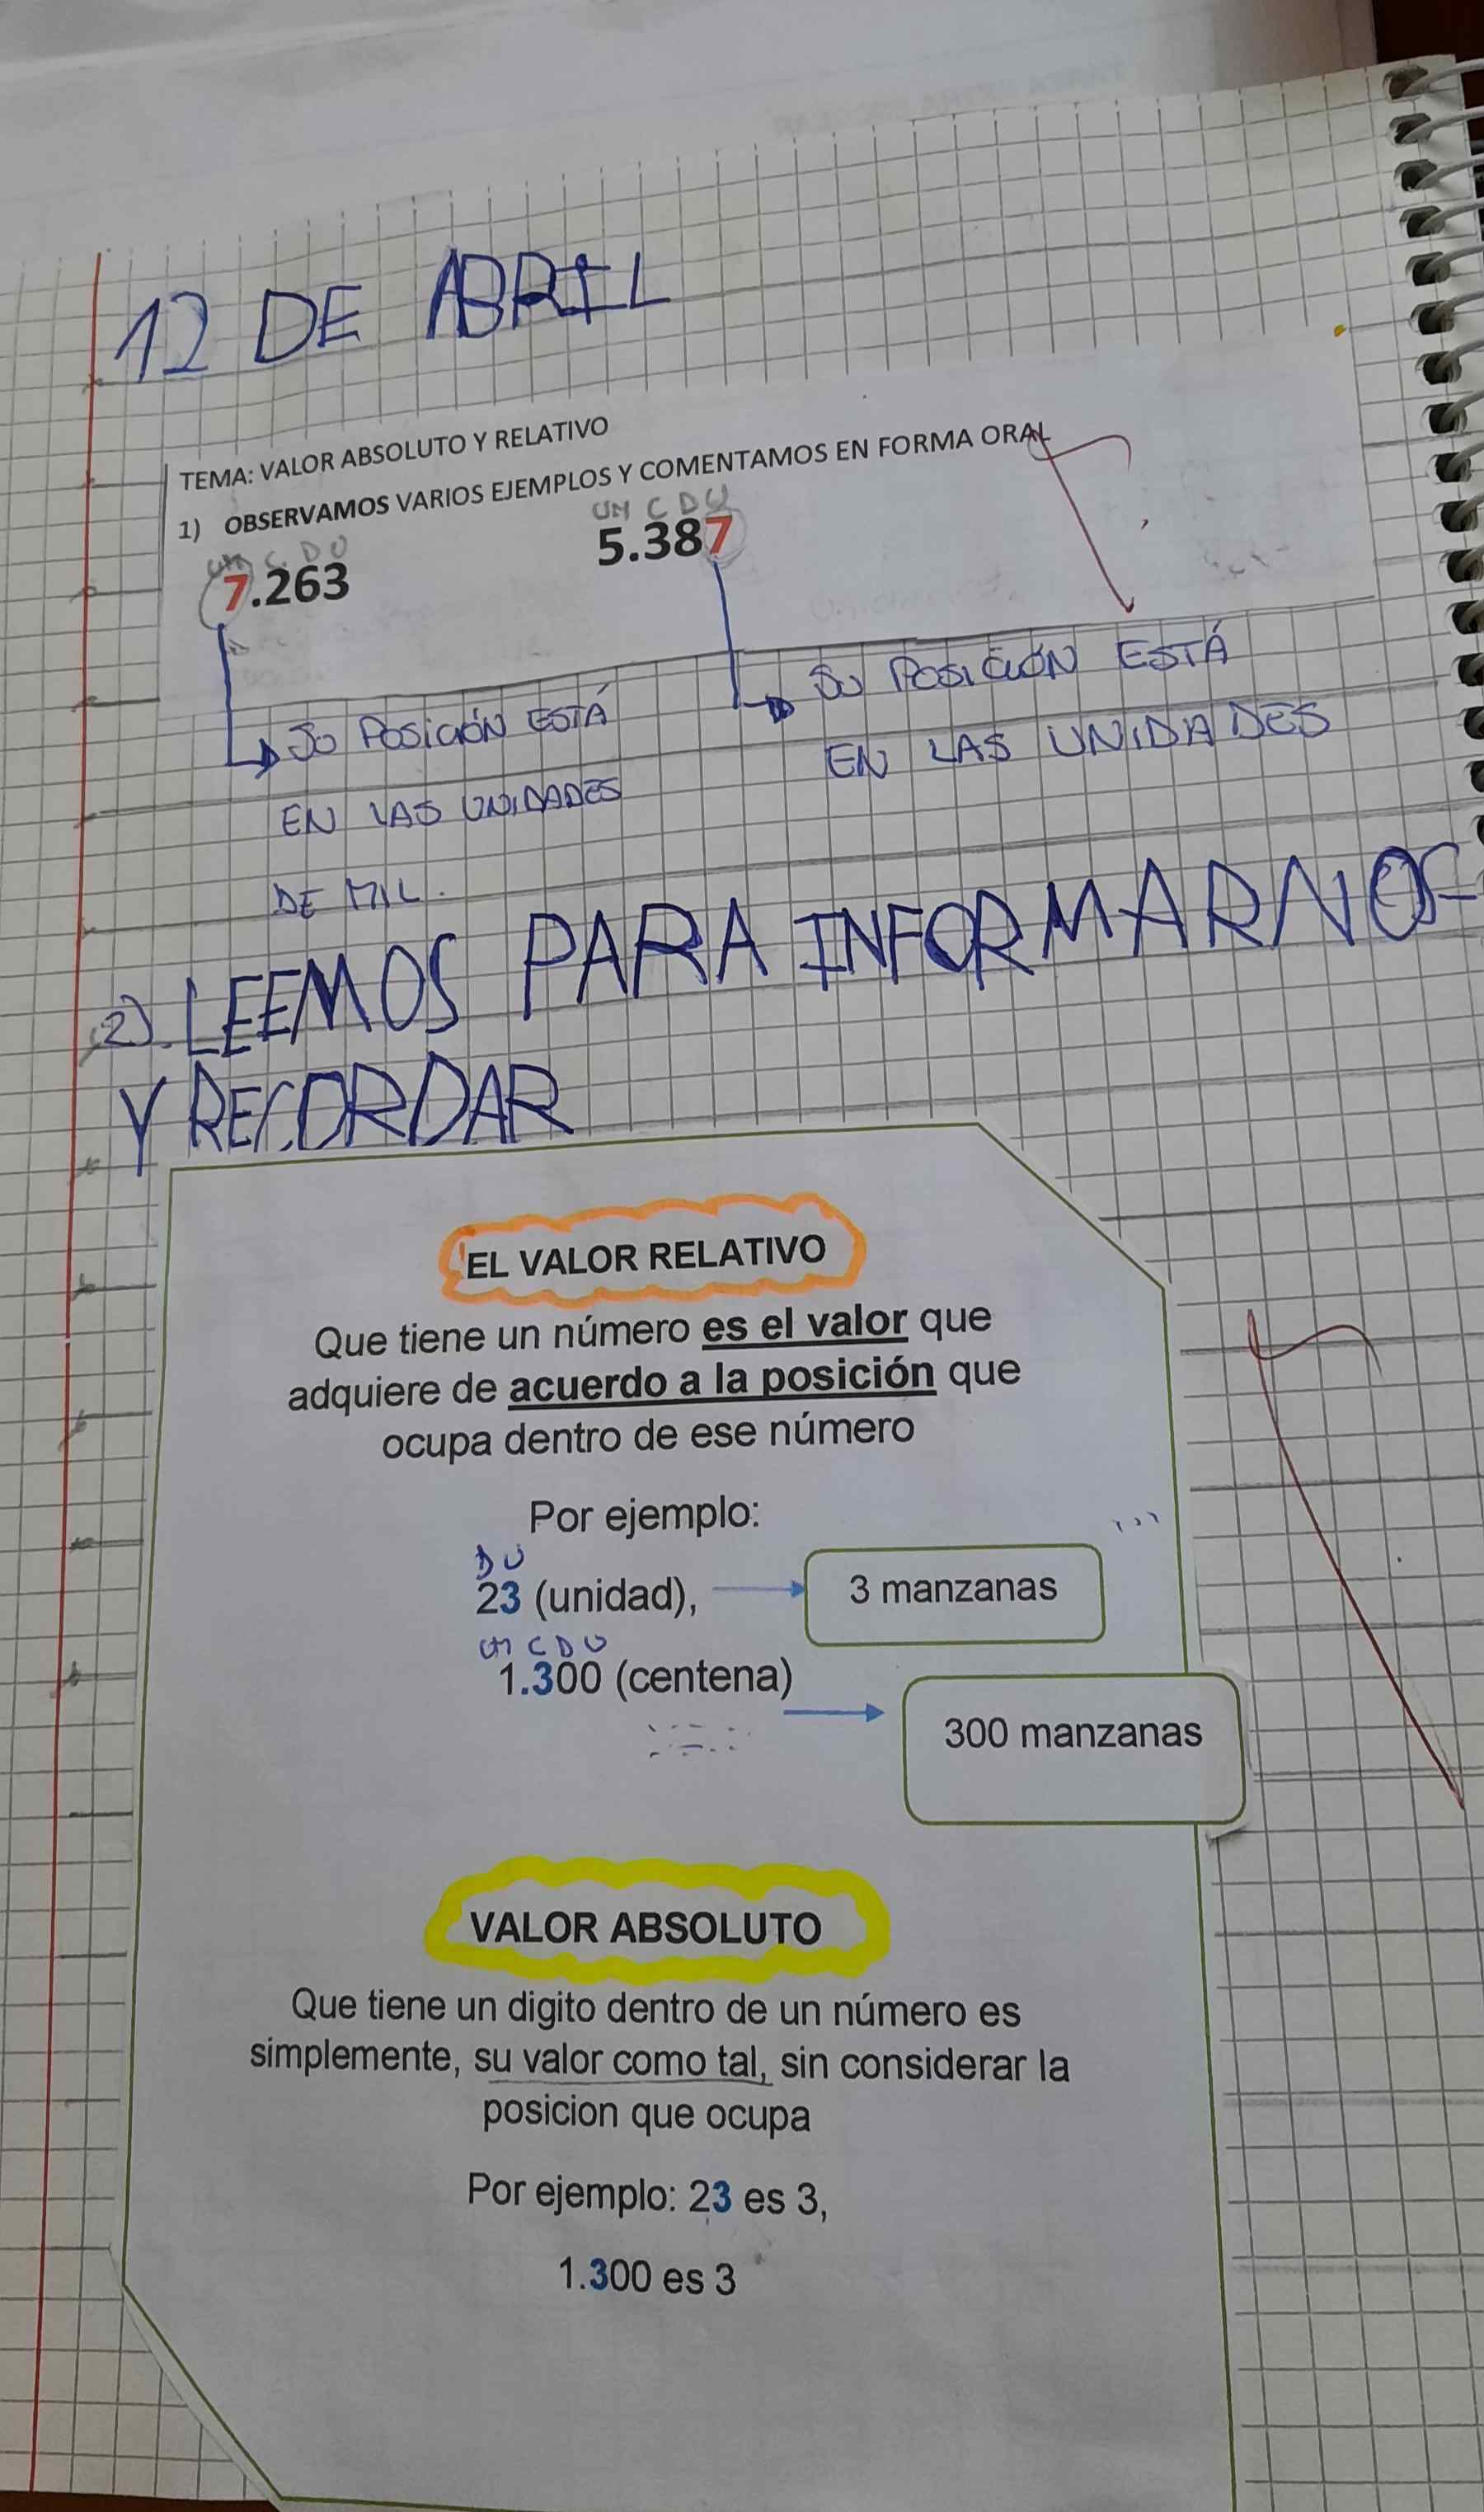 12 DE ABRIL
TEMA: VALOR ABSOLUTO Y RELATIVO
1) OBSERVAMOS VARIOS EJEMPLOS Y COMENTAMOS EN FORMA ORAL
UM C D U
7.263
UM C D U
5.387
SU POSICIÓN ESTÁ
EN LAS UNIDADES
DE MIL.
SU POSICIÓN ESTÁ
EN LAS UNIDADES
2). LEEMOS PARA INFORMARNOS
Y RECORDAR
EL VALOR RELATIVO
Que tiene un número es el valor que
adquiere de acuerdo a la posición que
ocupa dentro de ese número
Por ejemplo:
D U
23 (unidad),
3 manzanas
UM C D U
1.300 (centena)
300 manzanas
VALOR ABSOLUTO
Que tiene un digito dentro de un número es
simplemente, su valor como tal, sin considerar la
posicion que ocupa
Por ejemplo: 23 es 3,
1.300 es 3